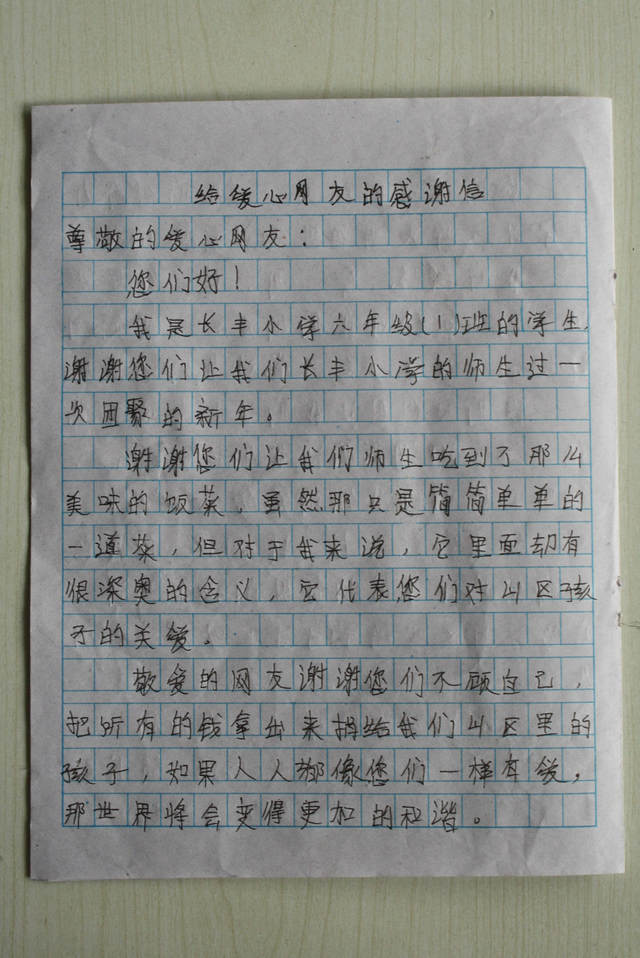 给爱心网友的感谢信
尊敬的爱心网友：
您们好！
我是长丰小学六年级(1)班的学生,
谢谢您们让我们长丰小学的师生过一
次团聚的新年。
谢谢您们让我们师生吃到了那么
美味的饭菜，虽然那只是简简单单的
一道菜，但对于我来说，它里面却有
很深奥的含义，它代表您们对山区孩
子的关爱。
敬爱的网友谢谢您们不顾自己，
把所有的钱拿出来捐给我们山区里的
孩子，如果人人都像您们一样有爱，
那世界将会变得更加的和谐。